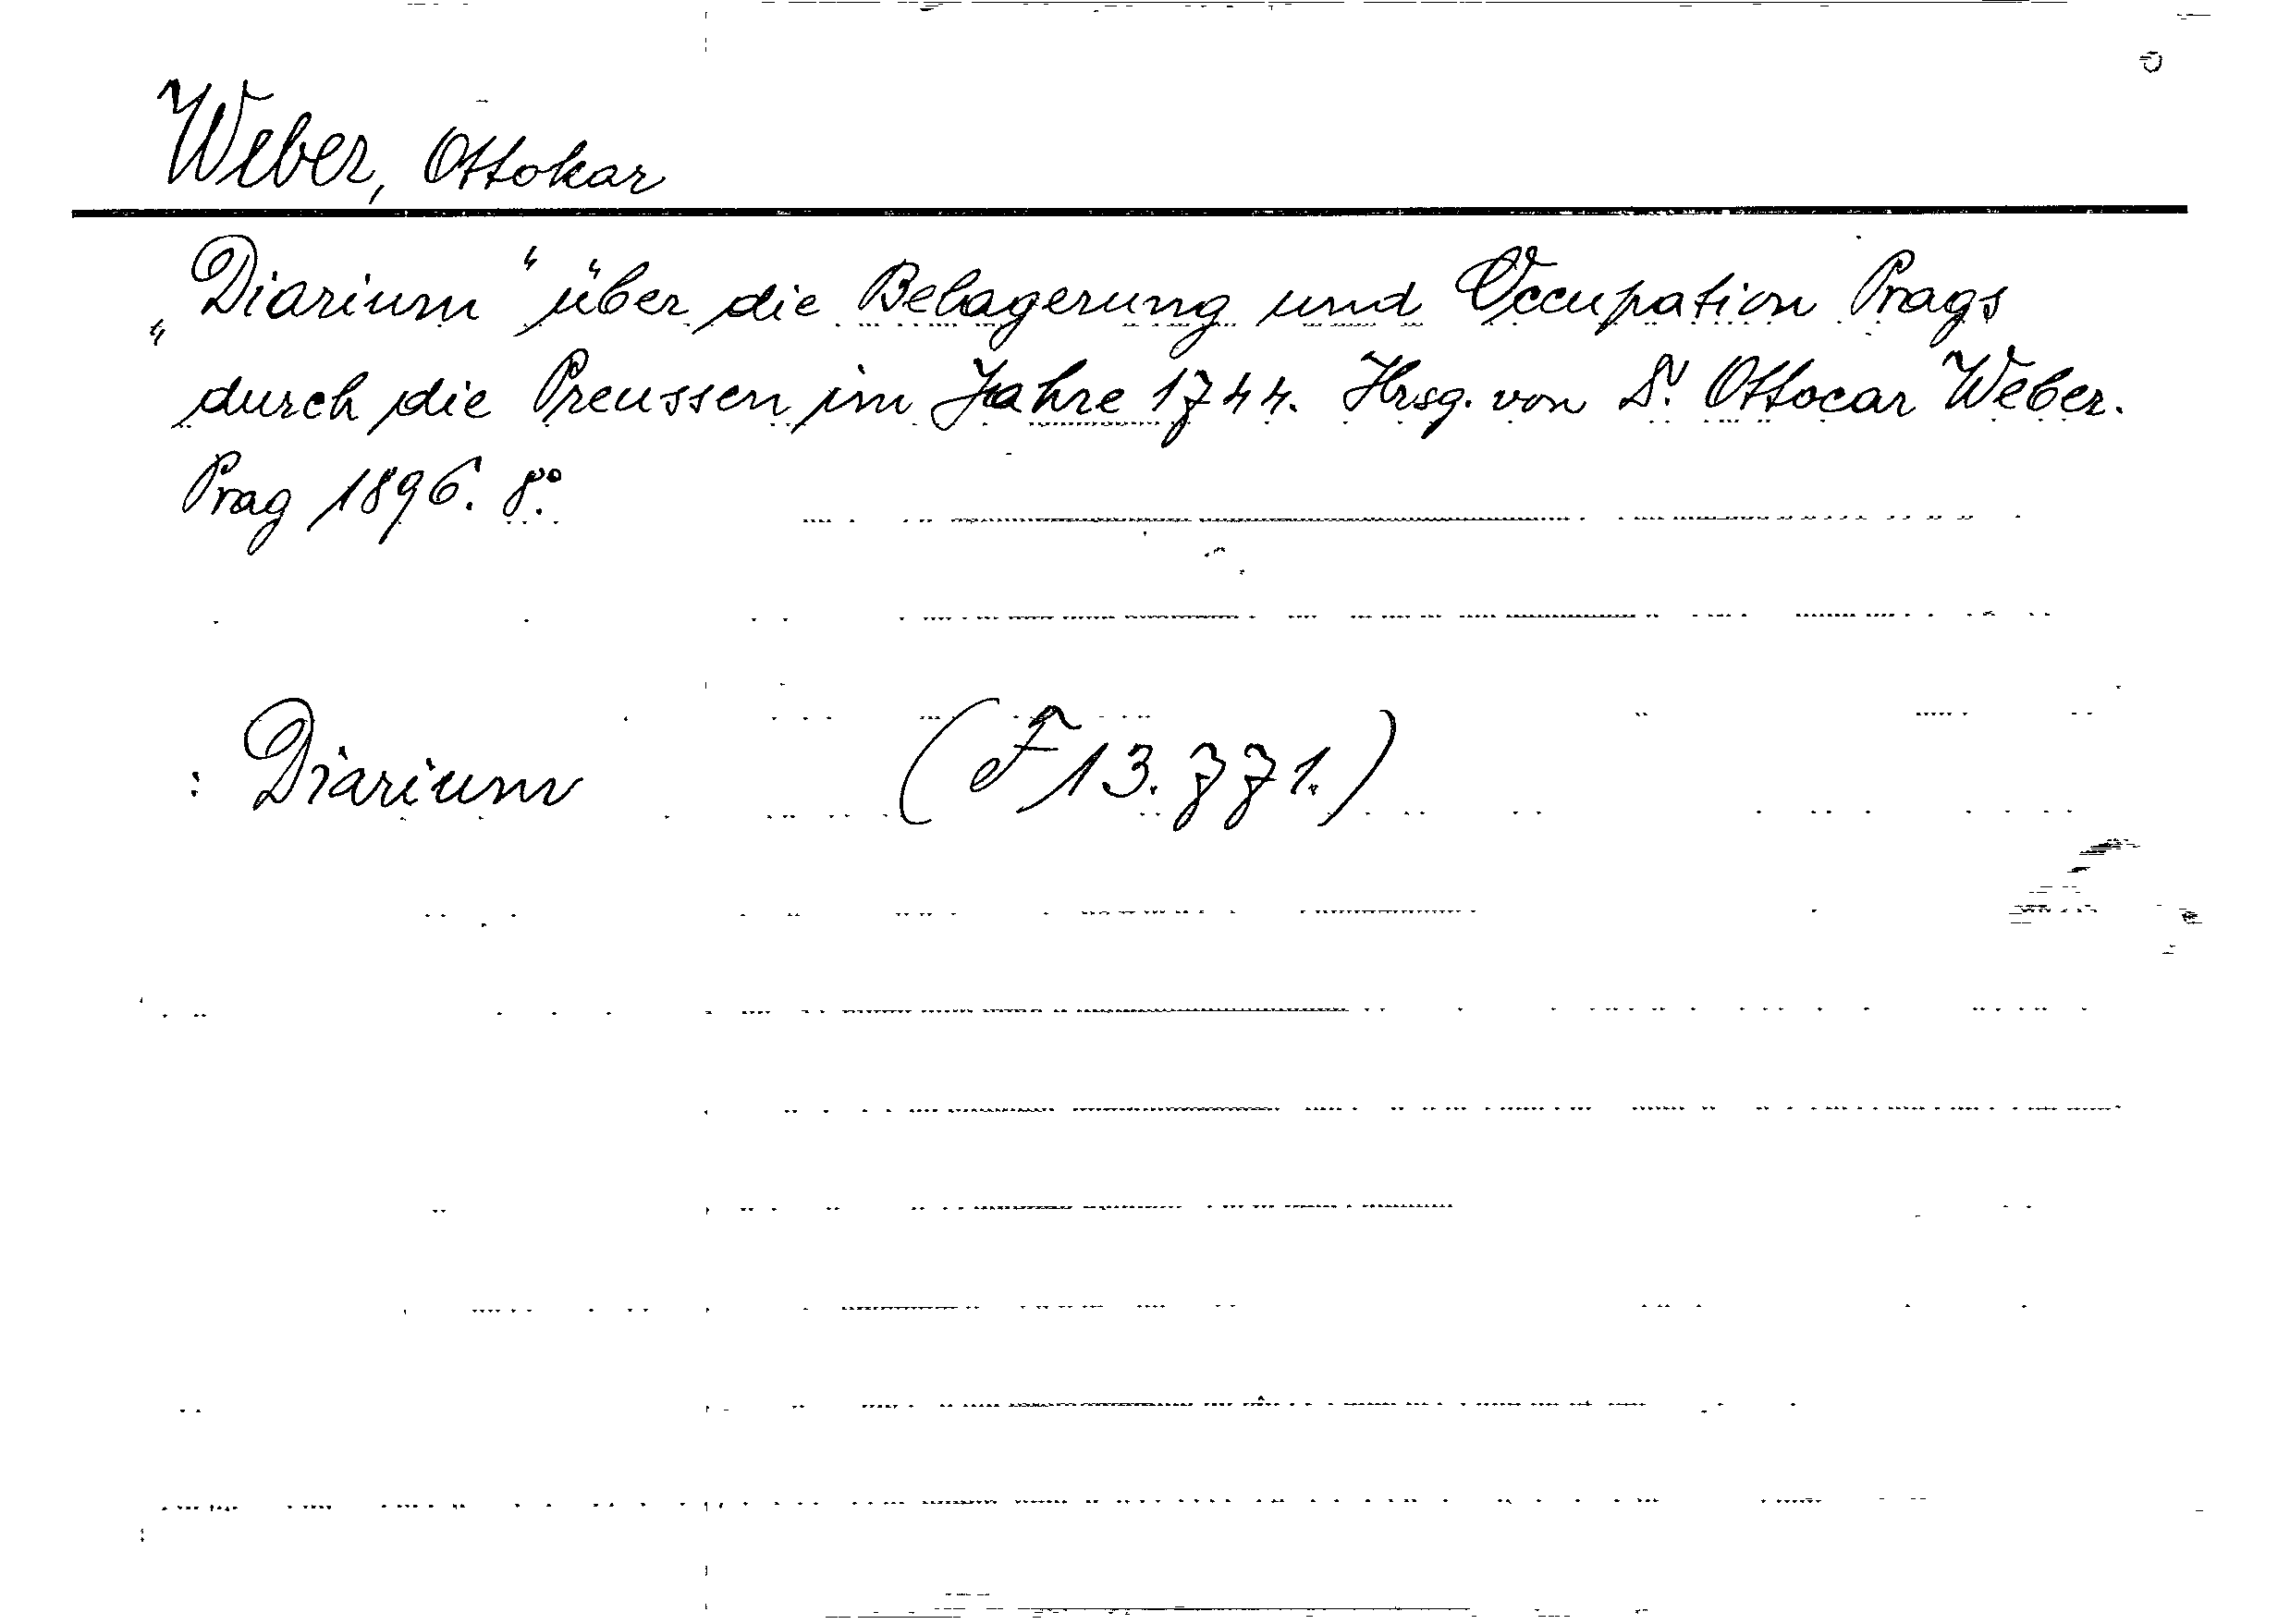 Weber, Ottokar
„Diarium“ über die Belagerung und Occupation Prags
durch die Preussen im Jahre 1744. Hrsg. von Dr. Ottocar Weber.
Prag 1896. 8°.
: Diarium (F 13.771.)